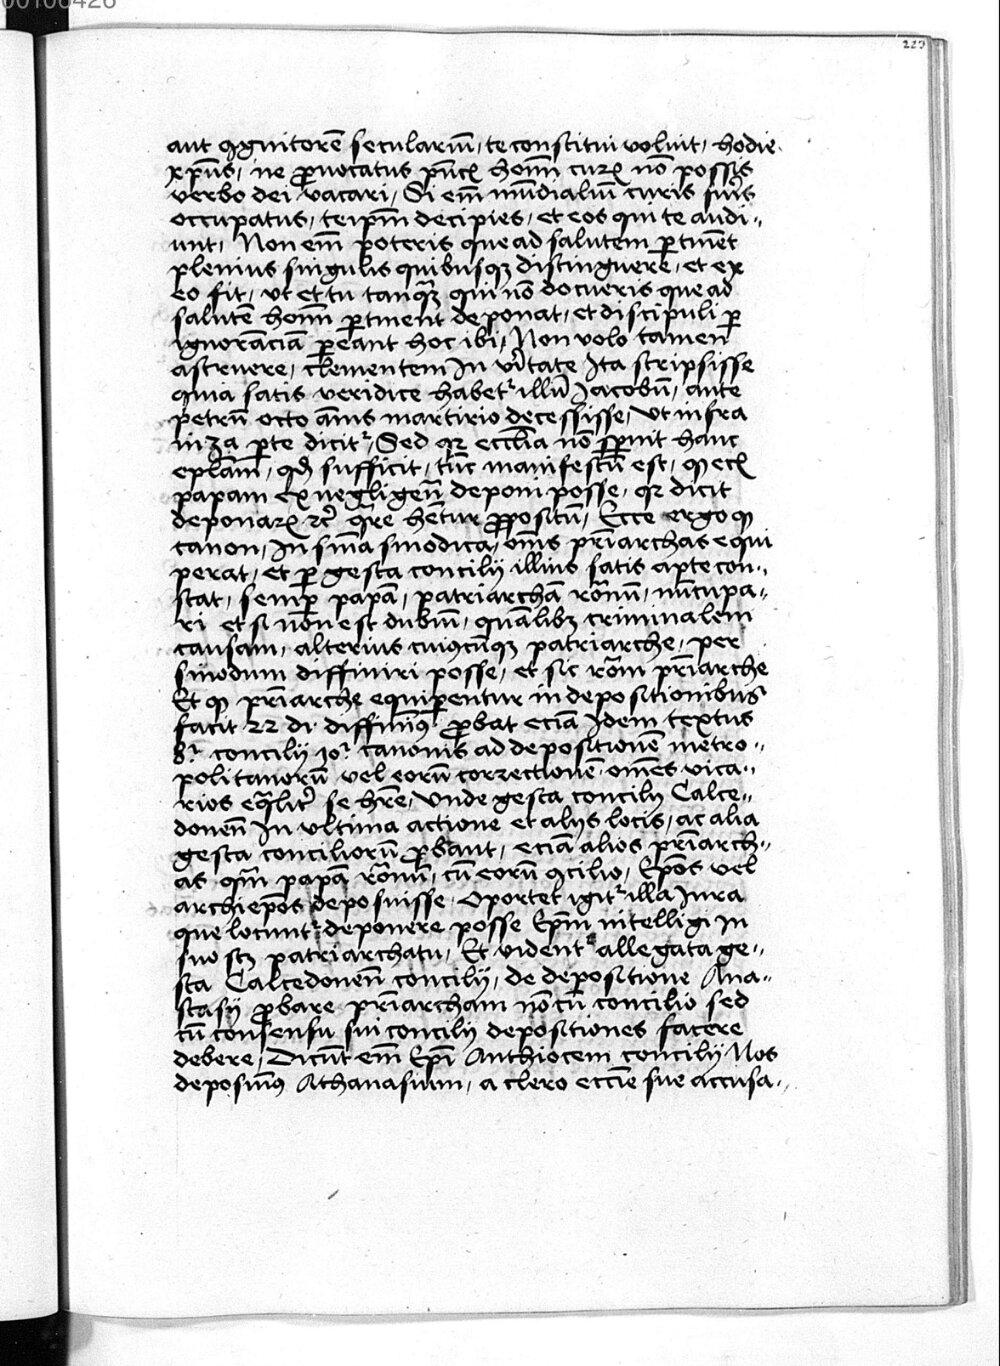 00106426
223
aut ꝯgnitorē seculariū / te constitui voluit / hodie
xp̄us / ne ꝓuocatus pn̄cꝫ homī curꝫ nō possis
verbo dei vacari / Si em̄ mūdialiū curis fu'is
occupatus / teip̄m decipies / et eos qui te audi〃
unt / Non em̄ poteris que ad salutem ꝑtinēt
plenius singulis quibusqꝫ distinguere / et ex
eo fit / vt et tu tanqꝫ qui nō docueris que ad
salutē homī ꝑtinent deponat / et discipuli ꝑ
ignorāciā ꝑeant hoc ibi / Non volo tamen
astruere / clementem In v'itate Ita scripsisse
quia satis veridice habetʳ illū Jacobū / ante
petrū octo annis martirio decessisse / Vt infra
in 3a ꝑte dicitʳ / Sed qꝛ eccl̄ia nō sp̄nit hanc
ep̄lam̄ / qđ sufficit / tūc manifestū est / ꝙ ecꝫ
papam ex negligen̄ deponi posse / qꝛ dicit
deponarꝫ ꝛc̄ qr̄e hētur ꝓpositū / Ecce ergo ꝙ
canon / In sm̄a sinodica / om̄s pr̄iarchas equi
perat / et ꝑ gesta concilij illius satis aꝑte con〃
stat / semꝑ papā / patriarchā rōnū / nūcupa〃
ri et si non est dubiū / quālibꝫ criminalem
causam / alterius cuiꝰcūqꝫ patriarche / per
sinodum diffiniri posse / et sic rōm pr̄iarche
Et ꝙ pr̄iarche equiꝑentur in depositionibus
facit 22 di diffinīꝰ ꝓbat eciā Idem textus
8ⁱ concilij 10ⁱ canonis ad depositionē metro〃
politanorū vel eorū correctionē om̄es vica〃
rios eq̄lit' se hr̄e / Vnde gesta concilij Calce〃
donen̄ In vltima actione et alijs locis / ac alia
gesta conciliorū ꝓbant / eciā alios pr̄iarch〃
as qm̄ papā rōnū / cū eorū ꝯcilio / Ep̄os vel
archiep̄os deposuisse / Oportet igitʳ illa Jura
que locuntʳ deponere posse Ep̄m intelligi In
suo scꝫ patriarchatu / Et videntʳ allegata ge〃
sta Calcedonen̄ concilij / de depositione Ana〃
stasij ꝓbare pr̄iarcham nō cū concilio sed
cū consensu sui concilij depositiones facere
debere / Dicūt em̄ Ep̄i Anthiocem concilij Nos
deposuiꝰ Athanasium / a clero eccīe sue accusa〃